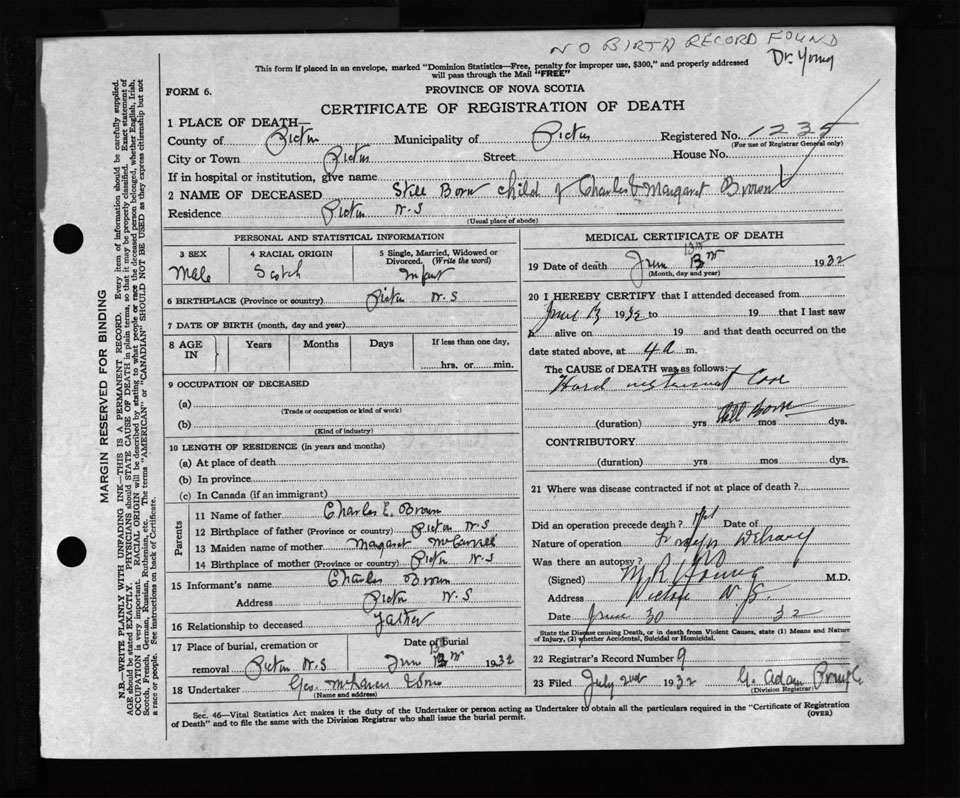 NO BIRTH RECORD FOUND
Dr. Young
This form if placed in an envelope, marked "Dominion Statistics—Free, penalty for improper use, $300," and properly addressed
will pass through the Mail "FREE"
FORM 6.
PROVINCE OF NOVA SCOTIA
CERTIFICATE OF REGISTRATION OF DEATH
1 PLACE OF DEATH—
County of Pictou Municipality of Pictou Registered No. 1235
(For use of Registrar General only)
City or Town Pictou Street House No.
If in hospital or institution, give name
2 NAME OF DECEASED Still Born child of Charles & Margaret Brown
Residence Pictou N.S
(Usual place of abode)
PERSONAL AND STATISTICAL INFORMATION
3 SEX 4 RACIAL ORIGIN 5 Single, Married, Widowed or
Divorced. (Write the word)
Male Scotch Infant
6 BIRTHPLACE (Province or country) Pictou N.S
7 DATE OF BIRTH (month, day and year)
8 AGE IN Years Months Days If less than one day,
hrs. or min.
9 OCCUPATION OF DECEASED
(a)
(Trade or occupation or kind of work)
(b)
(Kind of industry)
10 LENGTH OF RESIDENCE (in years and months)
(a) At place of death
(b) In province
(c) In Canada (if an immigrant)
Parents
11 Name of father Charles E. Brown
12 Birthplace of father (Province or country) Pictou N.S
13 Maiden name of mother Margaret
14 Birthplace of mother (Province or country) Pictou N.S
15 Informant's name Charles Brown
Address Pictou N.S
16 Relationship to deceased Father
17 Place of burial, cremation or
removal Pictou N.S
Date of burial
June 13th 1932
18 Undertaker Geo. & Sons
(Name and address)
MEDICAL CERTIFICATE OF DEATH
19 Date of death June 13th 1932
(Month, day and year)
20 I HEREBY CERTIFY that I attended deceased from
June 13 1932 to 19 that I last saw
h alive on 19 and that death occurred on
date stated above, at 4 a m.
The CAUSE of DEATH was as follows:
Hard instrument Case
Still Born
(duration) yrs mos dys.
CONTRIBUTORY
(duration) yrs mos dys.
21 Where was disease contracted if not at place of death?
Did an operation precede death? Date of
Nature of operation Forceps Delivery
Was there an autopsy? no
(Signed) M R Young M.D.
Address Pictou N.S.
Date June 30 32
State the Disease causing Death, or in death from Violent Causes, state (1) Means and Nature
of Injury, (2) whether Accidental, Suicidal or Homicidal.
22 Registrar's Record Number 9
23 Filed July 2nd 1932 G. Adam
(Division Registrar)
Sec. 46—Vital Statistics Act makes it the duty of the Undertaker or person acting as Undertaker to obtain all the particulars required in the "Certificate of Registration
of Death" and to file the same with the Division Registrar who shall issue the burial permit.
(OVER)
MARGIN RESERVED FOR BINDING
N.B.—WRITE PLAINLY WITH UNFADING INK—THIS IS A PERMANENT RECORD. Every item of information should be carefully supplied.
AGE should be stated EXACTLY. PHYSICIANS should STATE CAUSE OF DEATH in plain terms, so that it may be properly classified. Exact statement of
OCCUPATION is very important. RACIAL ORIGIN will be described by stating to what people or race the deceased person belonged, whether English, Irish,
Scotch, French, German, Russian, Ruthenian, etc. The terms "AMERICAN" or "CANADIAN" SHOULD NOT BE USED as they express citizenship but not
a race or people. See instructions on back of Certificate.